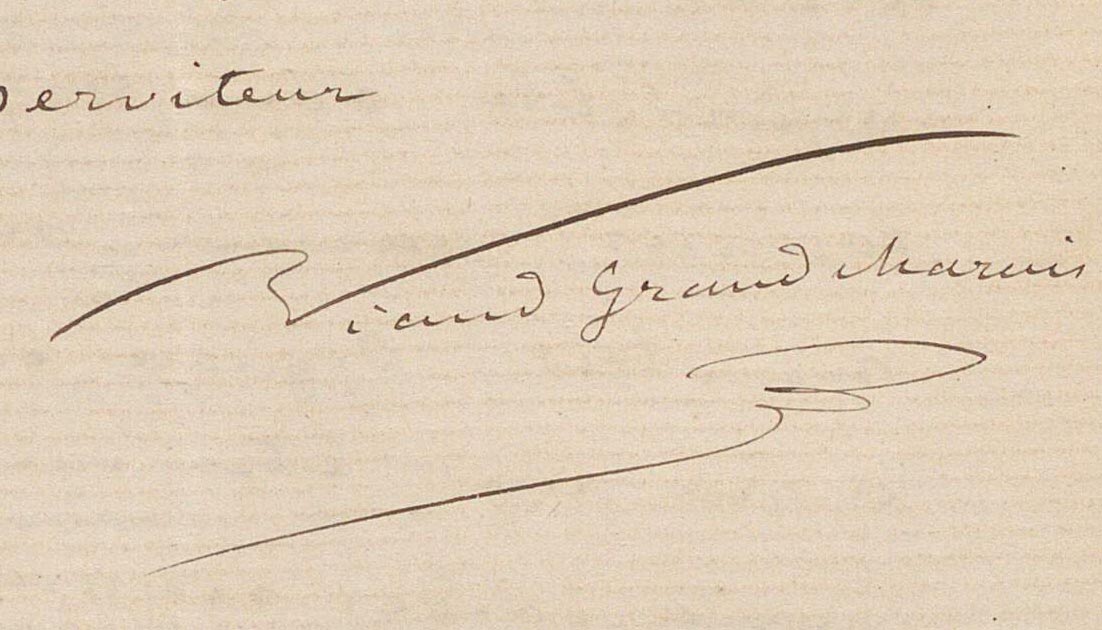 serviteur
Viaud Grand Marais